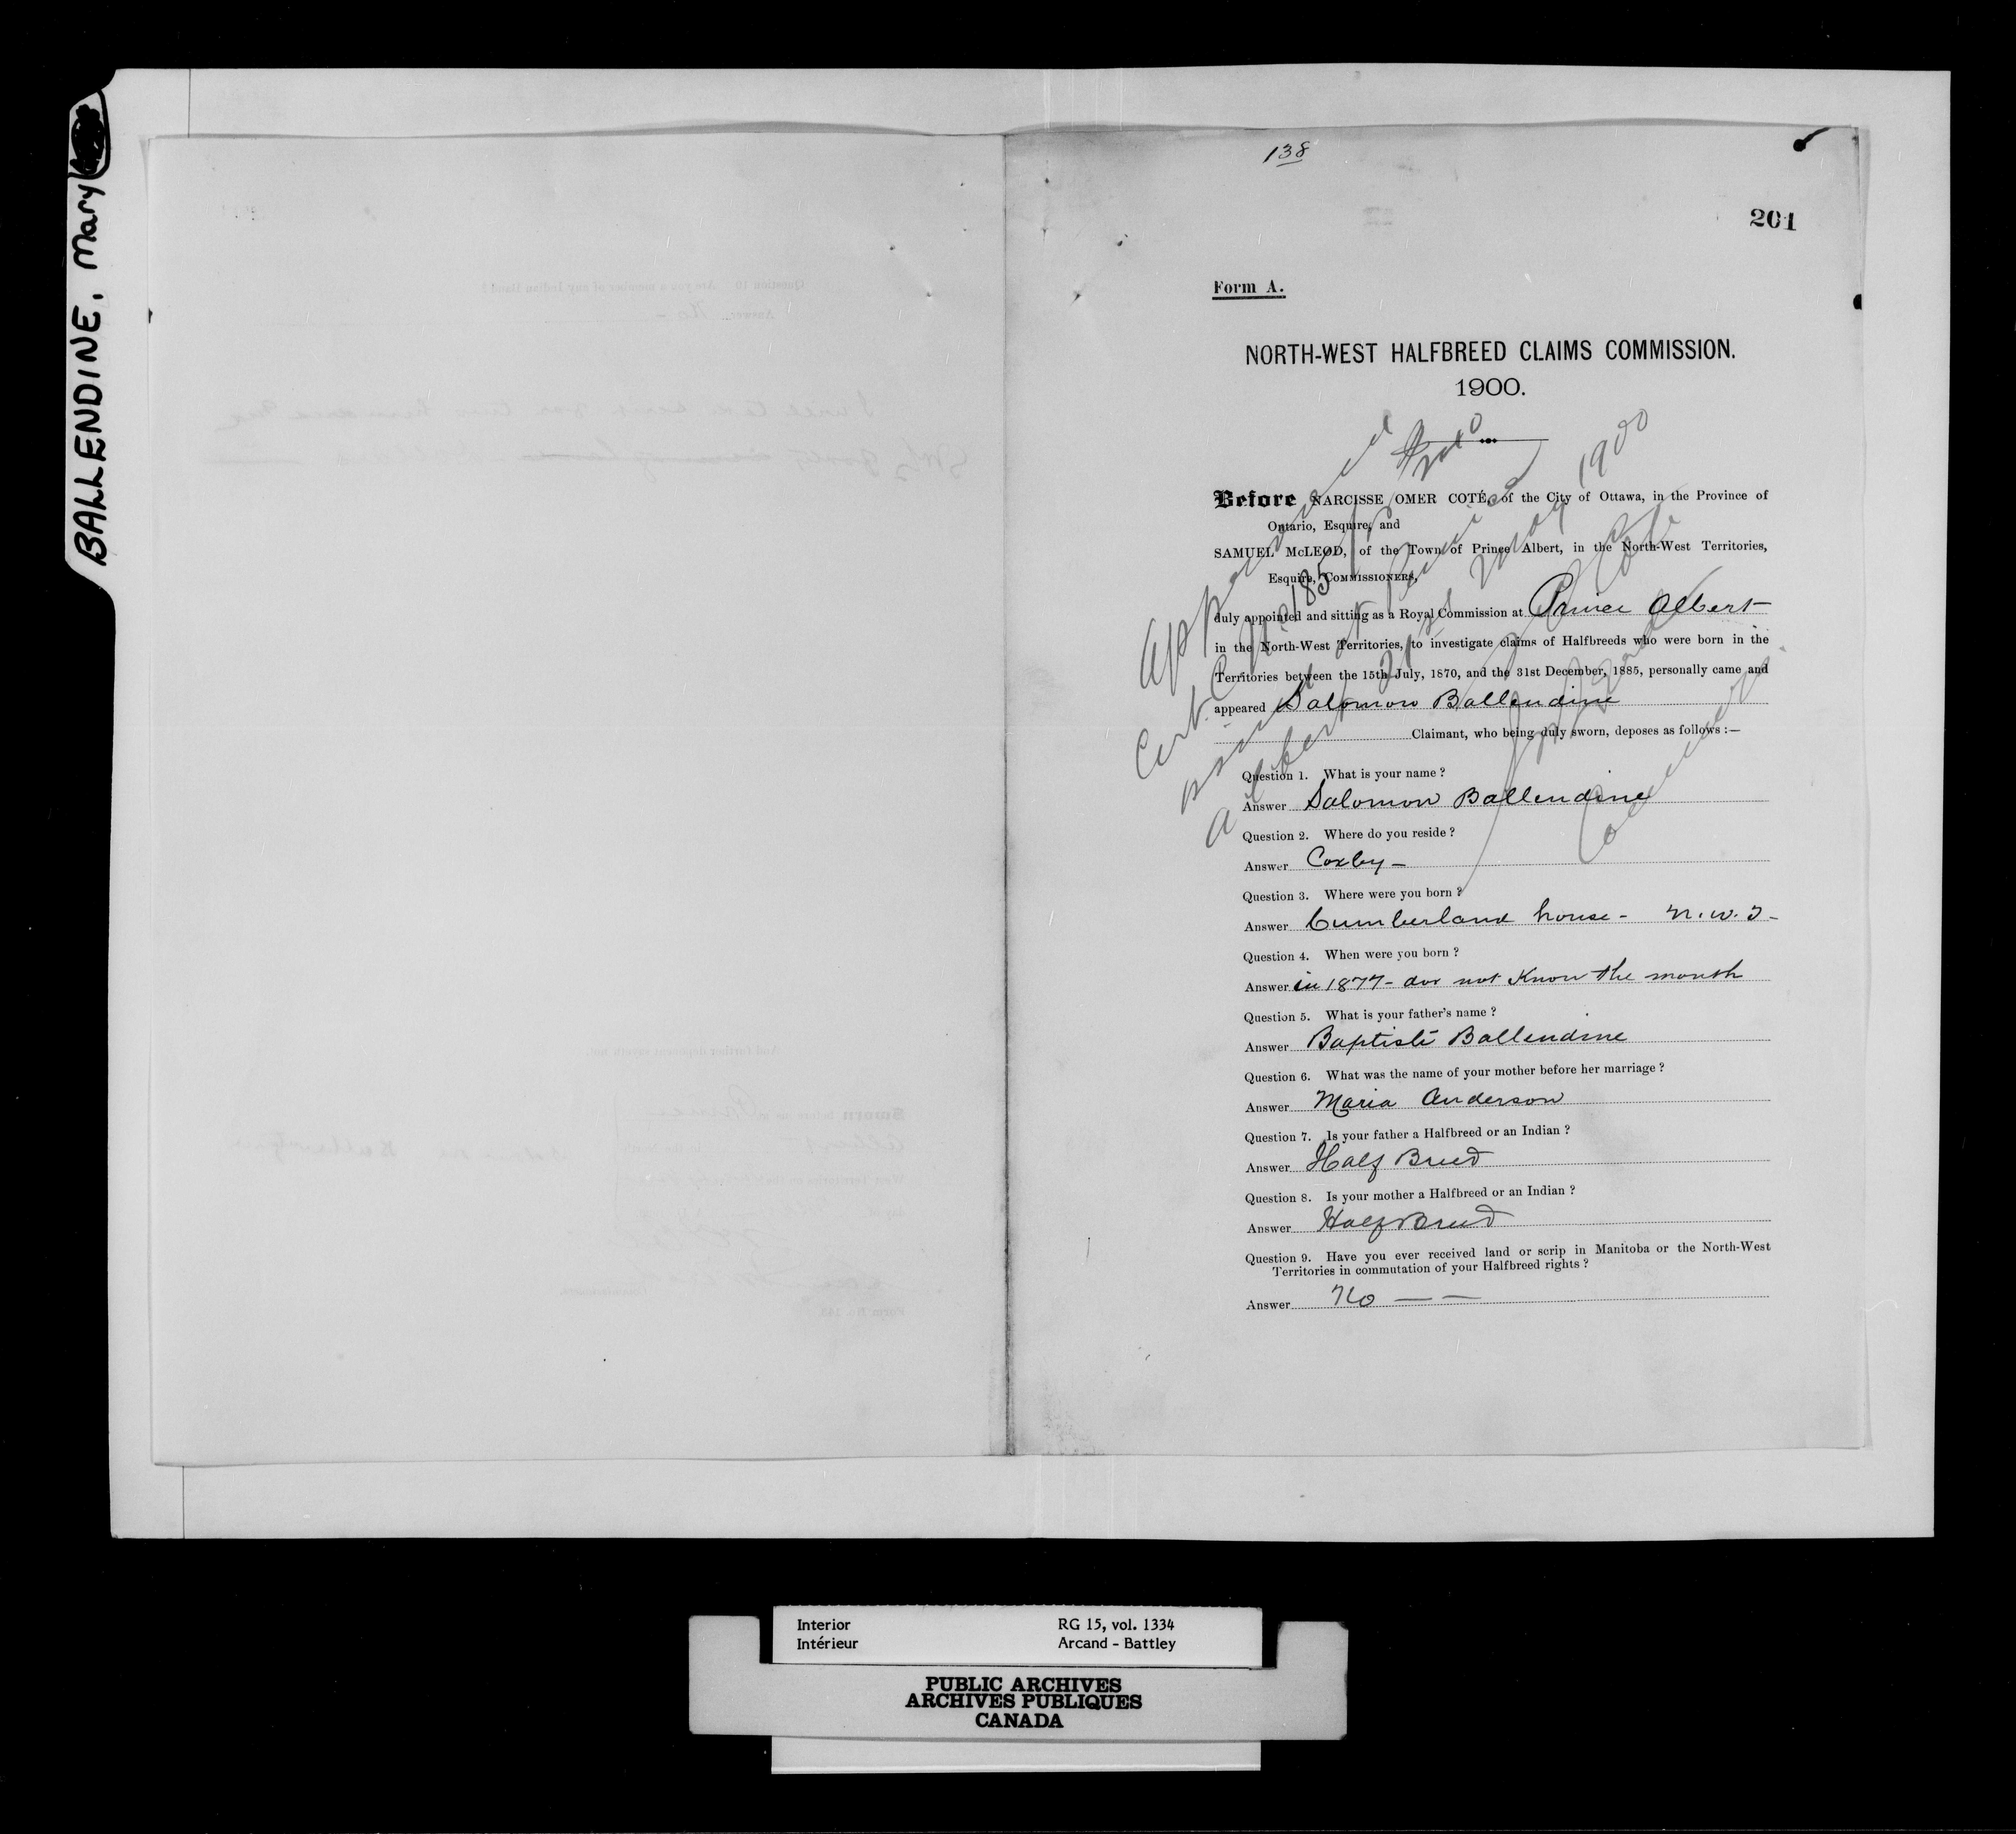 BALLENDINE, Mary
138
201
Form A.
NORTH-WEST HALFBREED CLAIMS COMMISSION.
1900.
Before NARCISSE OMER COTÉ, of the City of Ottawa, in the Province of
Ontario, Esquire, and
SAMUEL McLEOD, of the Town of Prince Albert, in the North-West Territories,
Esquire, COMMISSIONERS,
duly appointed and sitting as a Royal Commission at Prince Albert
in the North-West Territories, to investigate claims of Halfbreeds who were born in the
Territories between the 15th July, 1870, and the 31st December, 1885, personally came and
appeared Salomon Ballendine
Claimant, who being duly sworn, deposes as follows :—
Question 1. What is your name ?
Answer Salomon Ballendine
Question 2. Where do you reside ?
Answer Coxby —
Question 3. Where were you born ?
Answer Cumberland house - N.W.T-
Question 4. When were you born ?
Answer in 1877 - do not Know the month
Question 5. What is your father's name ?
Answer Baptiste Ballendine
Question 6. What was the name of your mother before her marriage ?
Answer Maria Anderson
Question 7. Is your father a Halfbreed or an Indian ?
Answer Half Breed
Question 8. Is your mother a Halfbreed or an Indian ?
Answer Half Breed
Question 9. Have you ever received land or scrip in Manitoba or the North-West
Territories in commutation of your Halfbreed rights ?
Answer No — —
Approved
Cert.
Albert 21st May 1900
Interior RG 15, vol. 1334
Intérieur Arcand - Battley
PUBLIC ARCHIVES
ARCHIVES PUBLIQUES
CANADA